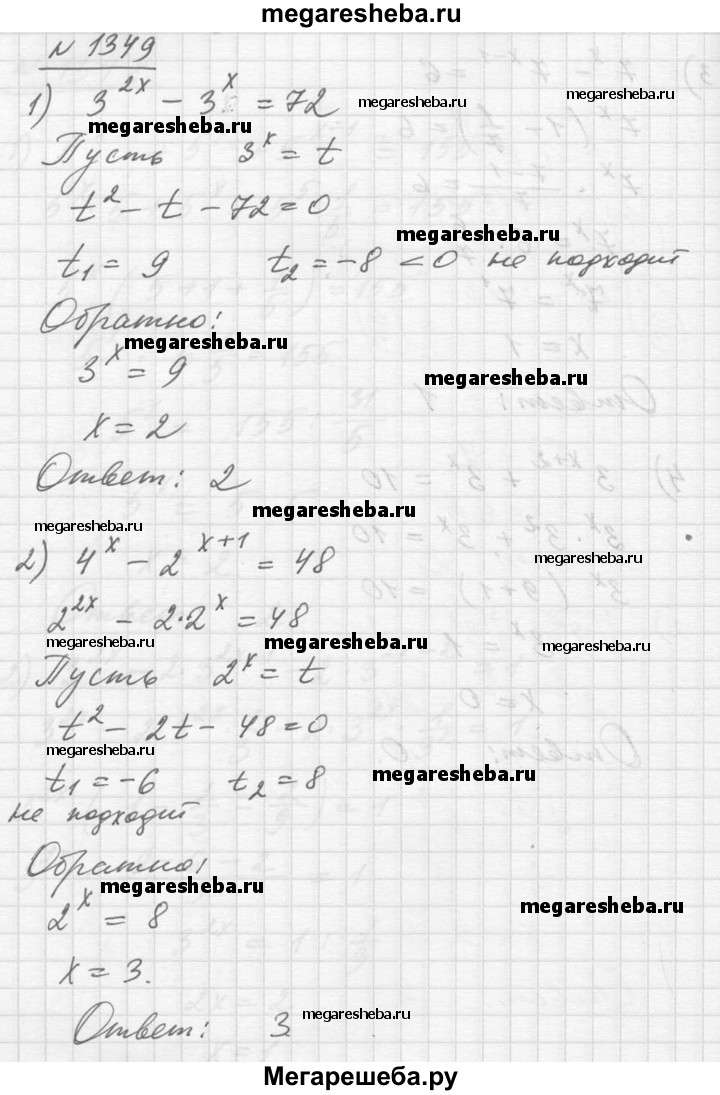 megaresheba.ru
N 1349
1) 3^{2x} - 3^x = 72 megaresheba.ru
megaresheba.ru megaresheba.ru
Пусть 3^x = t
t^2 - t - 72 = 0
megaresheba.ru
t_1 = 9 t_2 = -8 < 0 не подходит
Обратно:
megaresheba.ru
3^x = 9 megaresheba.ru
x = 2
Ответ: 2
megaresheba.ru megaresheba.ru
2) 4^x - 2^{x+1} = 48 megaresheba.ru
2^{2x} - 2·2^x = 48
megaresheba.ru megaresheba.ru megaresheba.ru
Пусть 2^x = t
t^2 - 2t - 48 = 0
megaresheba.ru
t_1 = -6 t_2 = 8 megaresheba.ru
не подходит megaresheba.ru
Обратно!
megaresheba.ru
2^x = 8 megaresheba.ru
x = 3.
Ответ: 3 megaresheba.ru
Мегарешеба.ру